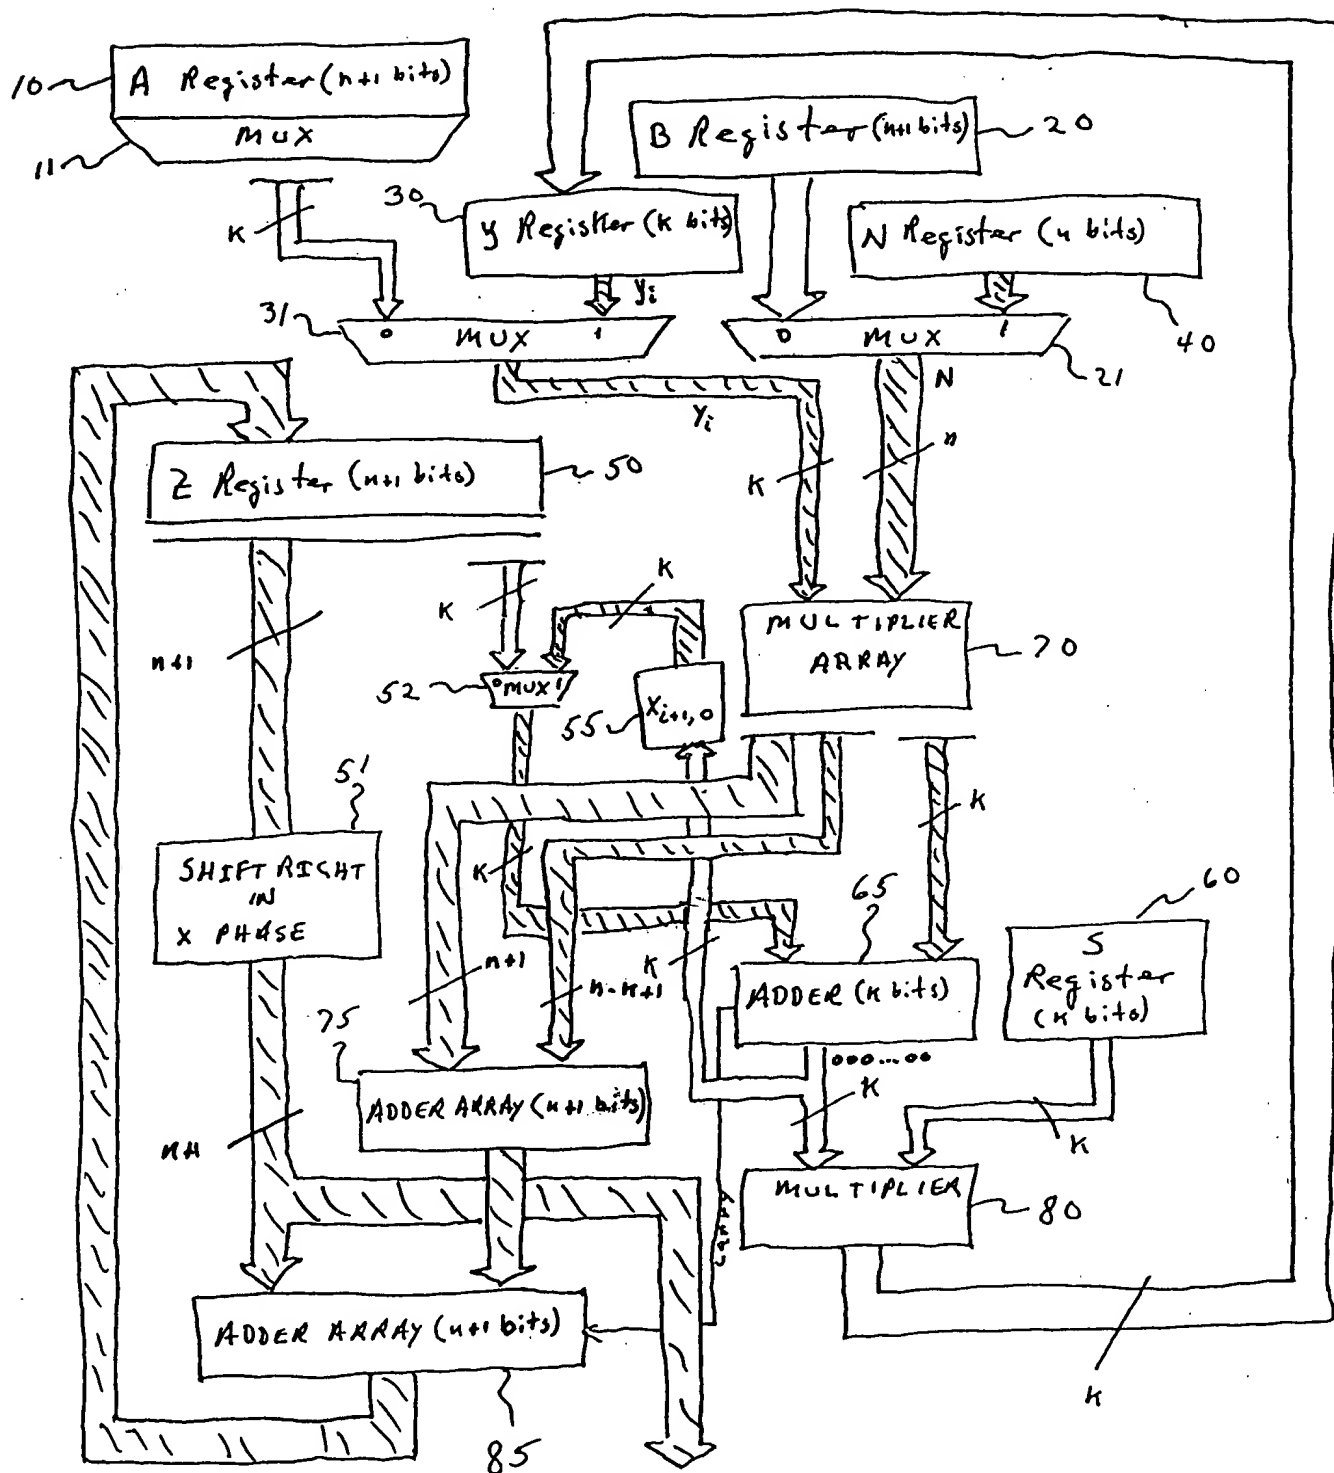 10
A Register (n+1 bits)
MUX
11
B Register (n+1 bits)
20
K
30
y Register (k bits)
N Register (n bits)
yi
31
0 MUX 1
0 MUX 1
40
21
N
Yi
Z Register (n+1 bits)
50
K
n
K
K
n+1
MULTIPLIER
ARRAY
70
52
0 MUX 1
55
Xi+1,0
51
K
SHIFT RIGHT
IN
X PHASE
K
65
60
S
Register
(k bits)
n+1
n-k+1
K
ADDER (k bits)
75
000...00
K
ADDER ARRAY (n+1 bits)
K
n+1
MULTIPLIER
80
carry
ADDER ARRAY (n+1 bits)
85
K